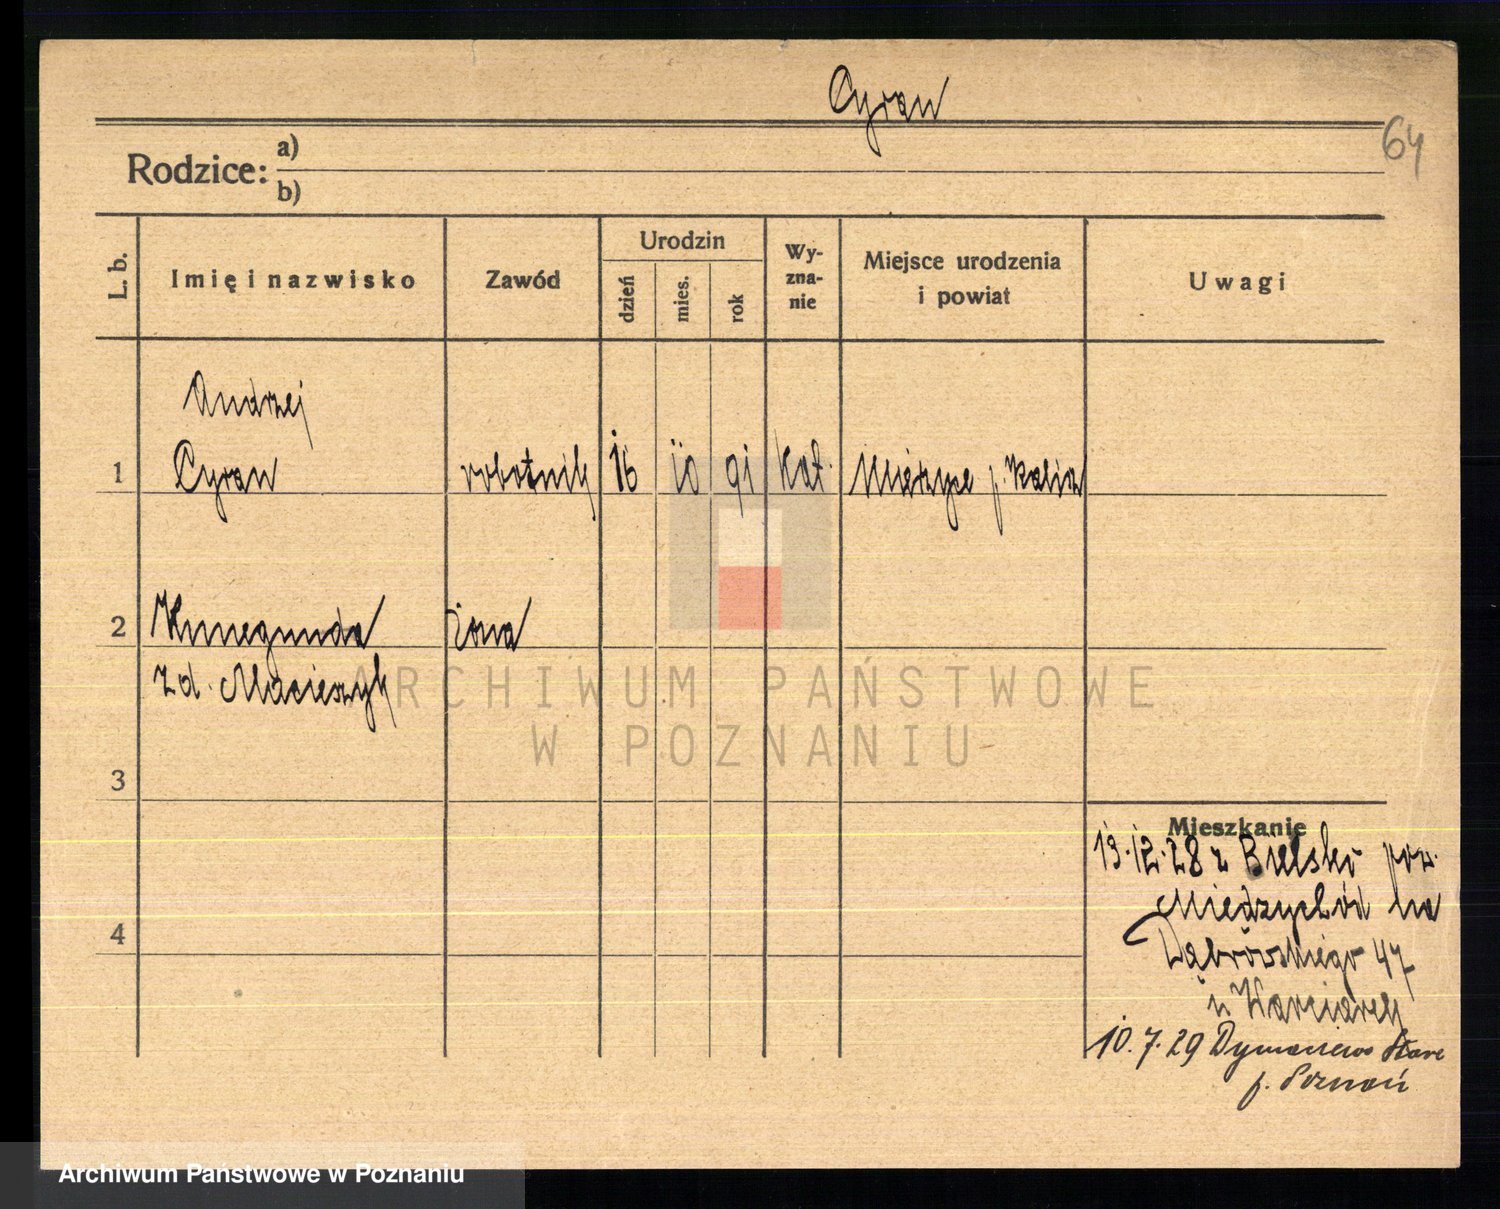 Cyran
64
Rodzice: a)
b)
L. b.
Imię i nazwisko
Zawód
Urodzin
dzień
mies.
rok
Wy-
zna-
nie
Miejsce urodzenia
i powiat
Uwagi
Andrzej
1 Cyran robotnik 16 10 91 kat. p. Kalisz
2 Kunegunda żona
zd. Macieszyk
3
4
Mieszkanie
13.12.28 z Bielsko pow.
Międzychód na
Dąbrowskiego 47
u
10.7.29 Stare
p. Poznań
ARCHIWUM PAŃSTWOWE
W POZNANIU
Archiwum Państwowe w Poznaniu